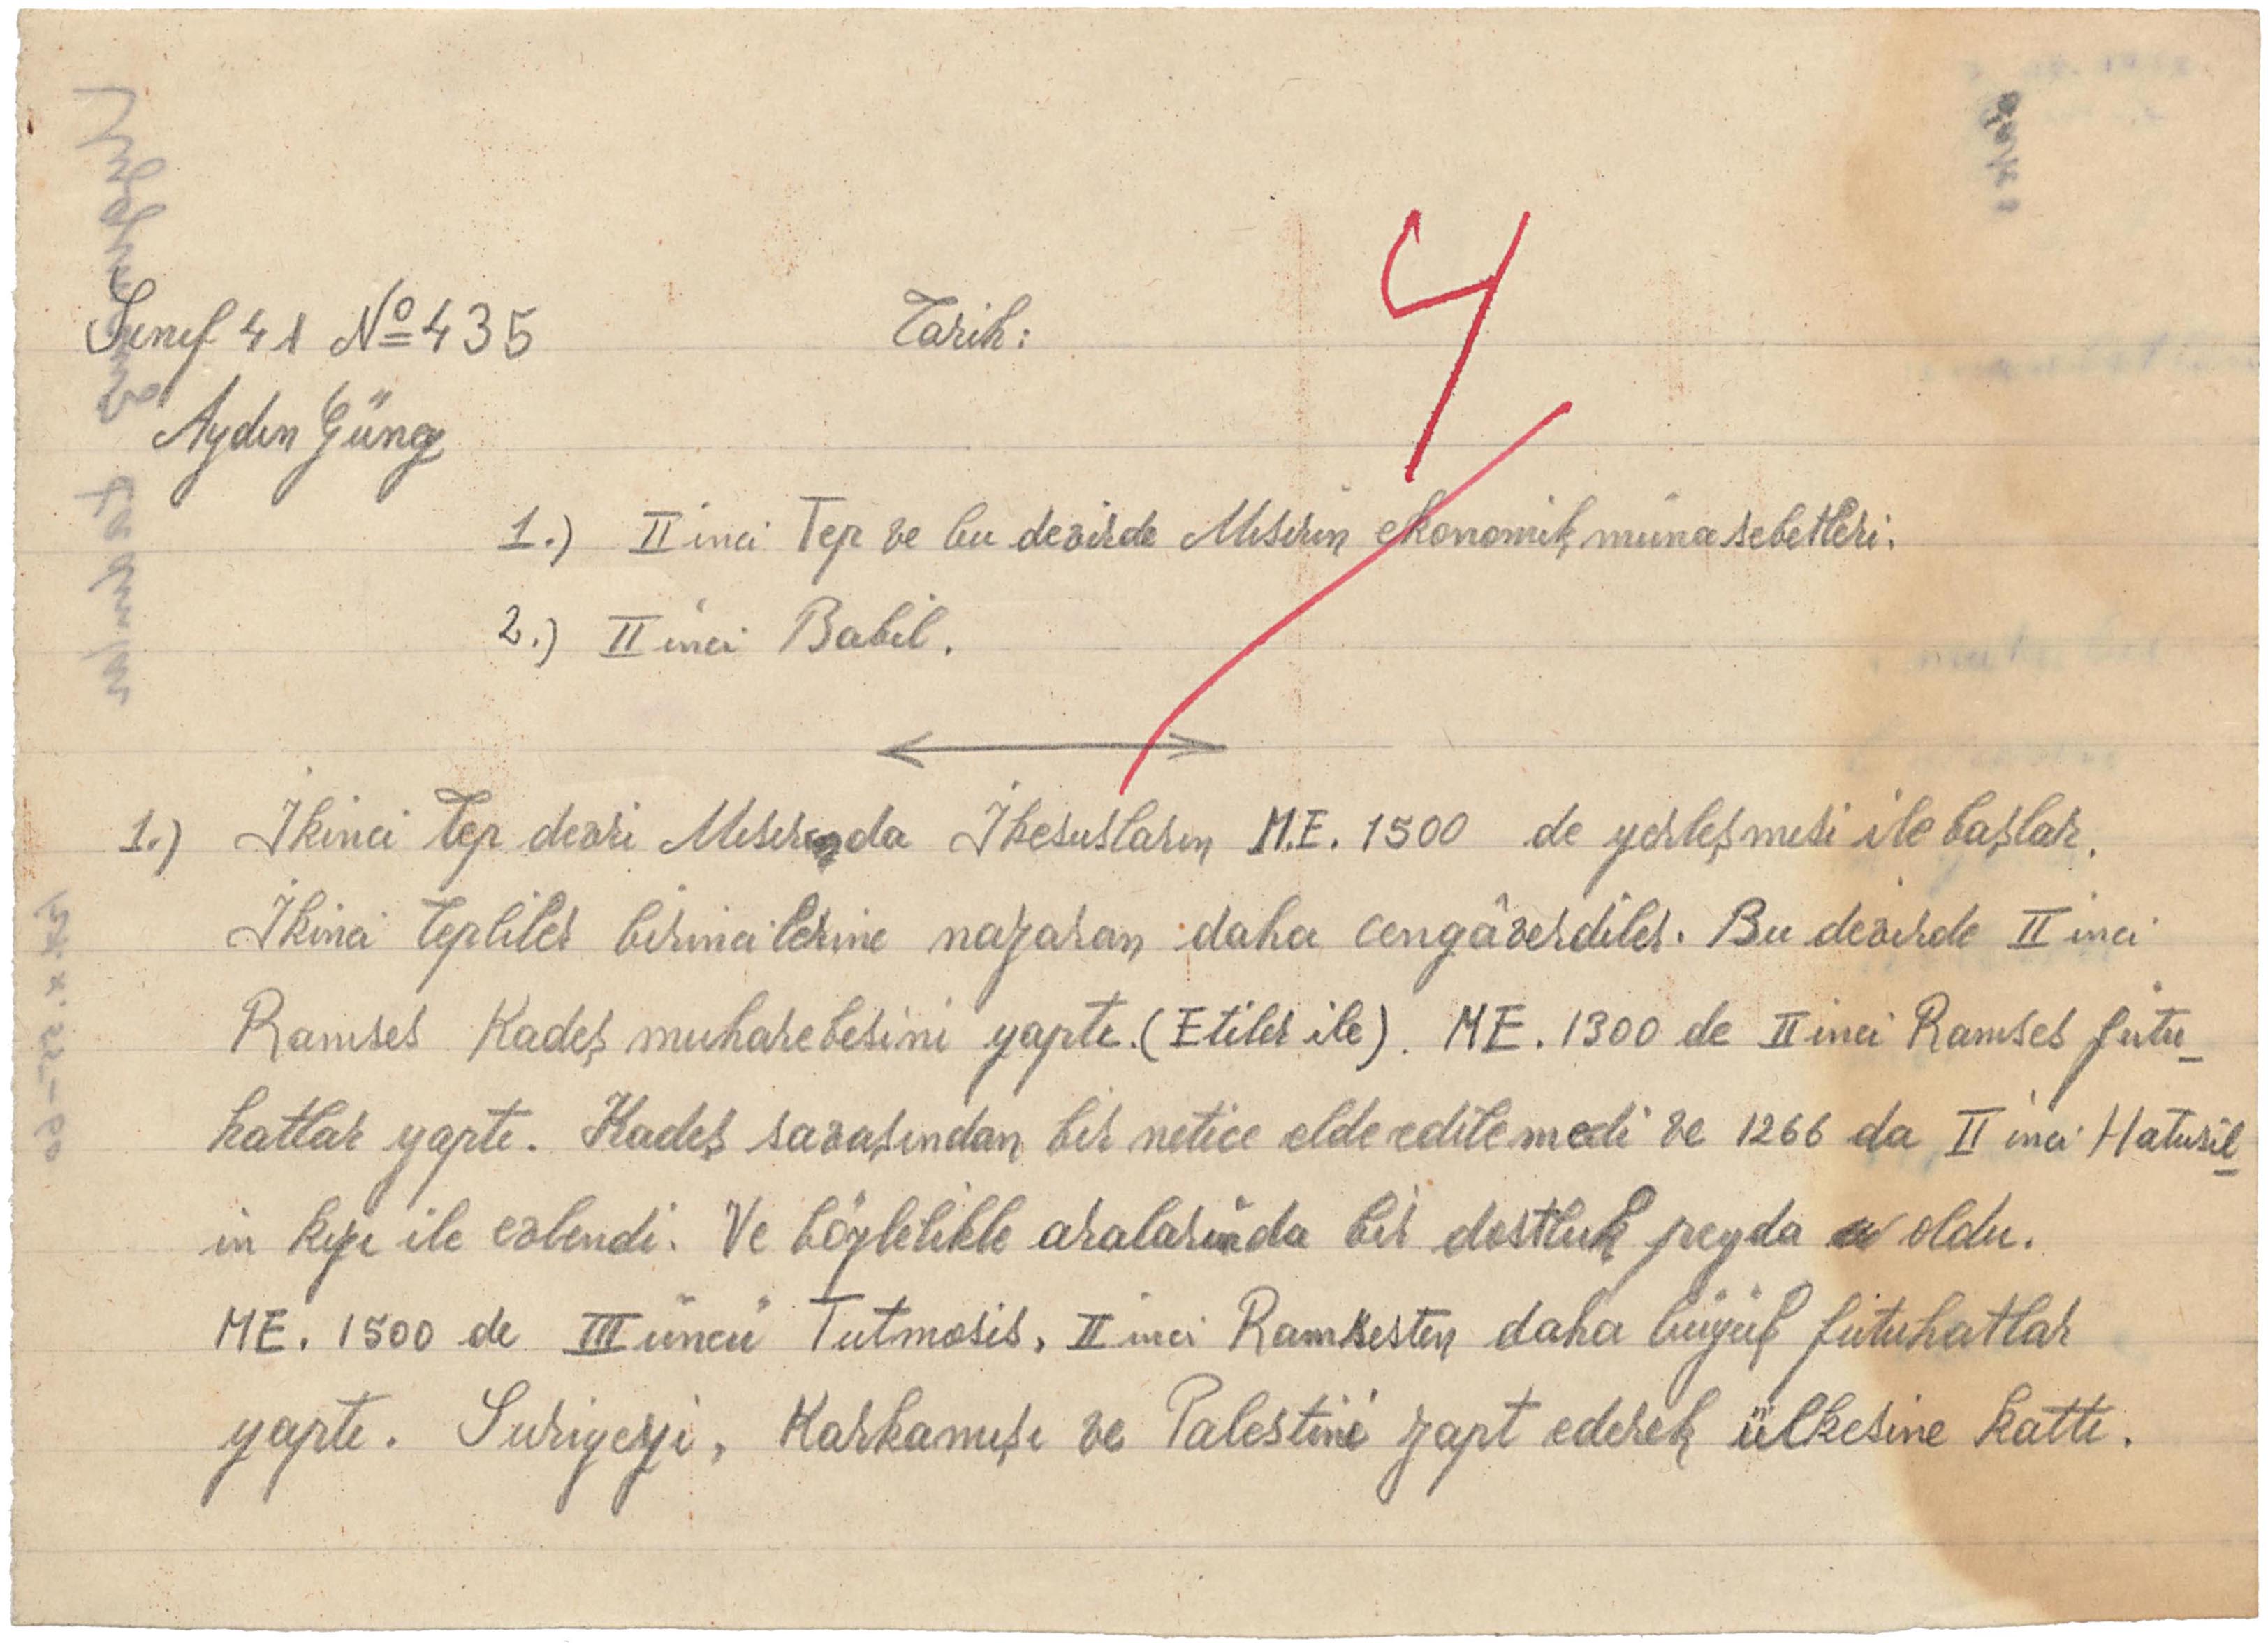 Sınıf 41 Nº 435
Tarih:
4
Aydın Güng
1.) II inci Tep ve bu devirde Mısırın ekonomik münasebetleri.
2.) II inci Babil.
1.) İkinci Tep devri Mısırda İkesusların M.E. 1500 de yerleşmesi ile başlar.
İkinci Tepliler birincilerine nazaran daha cengâverdiler. Bu devirde II inci
Ramses Kadeş muharebesini yaptı. (Etiler ile). ME. 1300 de II inci Ramses fütu-
hatlar yaptı. Kadeş savaşından bir netice elde edilemedi ve 1266 da II inci Hatusil-
in kızı ile evlendi. Ve böylelikle aralarında bir dostluk peyda oldu.
ME. 1500 de III üncü Tutmosis, II inci Ramsesten daha büyük fütuhatlar
yaptı. Suriyeyi, Karkamışı ve Palestini zapt ederek ülkesine kattı.